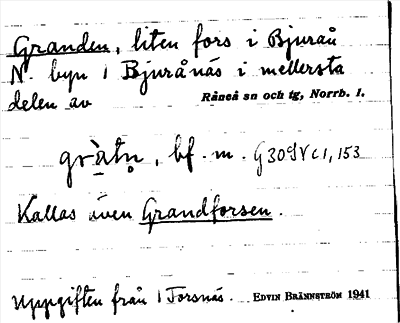 Granden, liten fors i Bjuraå
N. byn 1 Bjurånäs i mellersta
delen av Råneå sn och tg, Norrb. l.
gràtn̥, bf. m.
Kallas även Grandforsen.
Uppgiften från 1 Forsnäs. EDVIN BRÄNNSTRÖM 1941